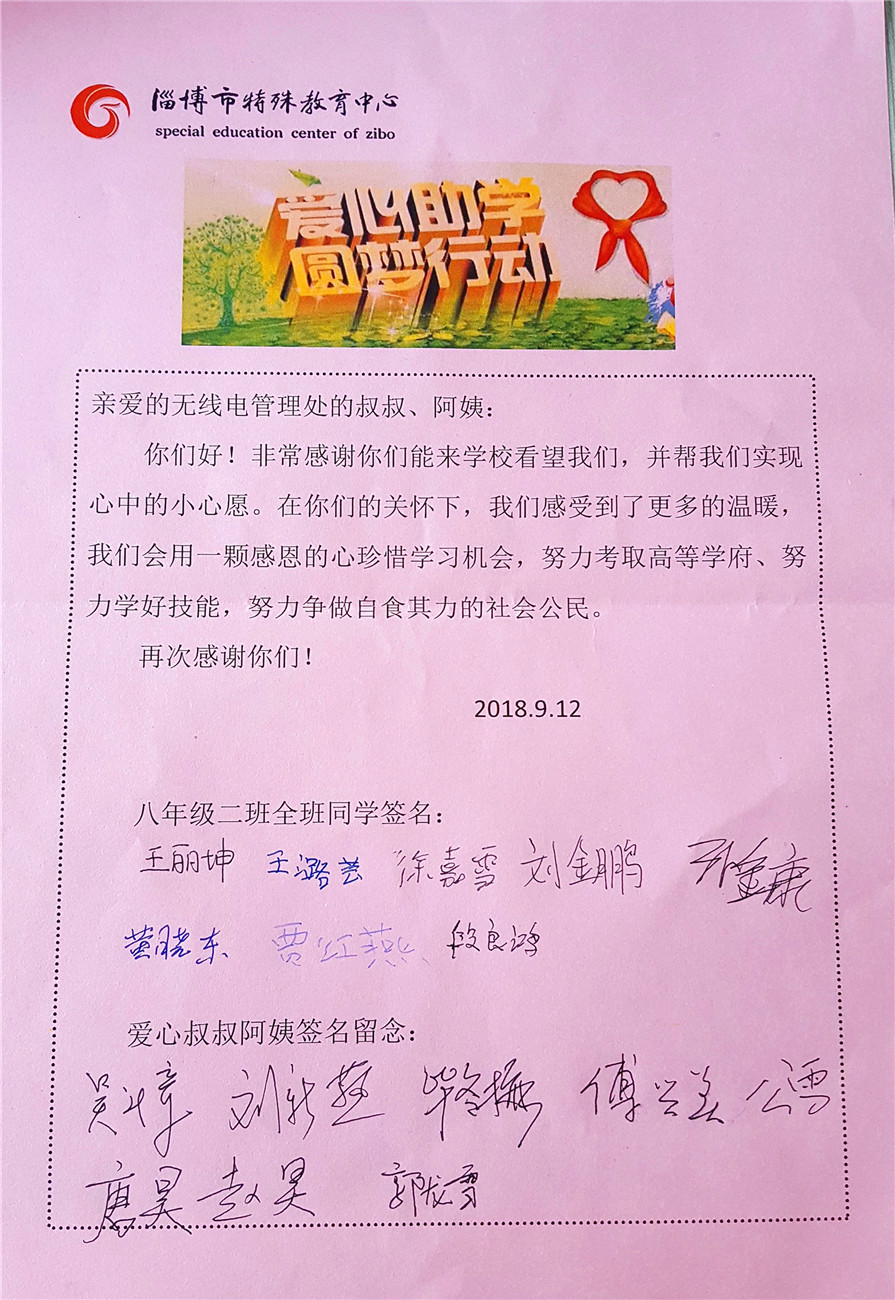 淄博市特殊教育中心
special education center of zibo
爱心助学
圆梦行动
亲爱的无线电管理处的叔叔、阿姨：
你们好！非常感谢你们能来学校看望我们，并帮我们实现
心中的小心愿。在你们的关怀下，我们感受到了更多的温暖，
我们会用一颗感恩的心珍惜学习机会，努力考取高等学府、努
力学好技能，努力争做自食其力的社会公民。
再次感谢你们！
2018.9.12
八年级二班全班同学签名：
王丽坤 王潞芸 徐嘉雪 刘金鹏
贾红燕 段良鸿
爱心叔叔阿姨签名留念：
刘新燕 公雪
唐昊 赵昊 郭成霄